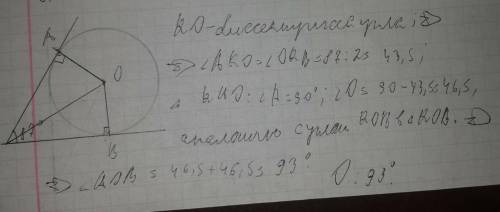 A
O
B
KO - биссектриса угла; ⇒
⇒ ∠AKO = ∠OKB = 87:2 = 43,5;
Δ KAO: ∠A = 90°; ∠O = 90 - 43,5 = 46,5,
аналогично с углом KOB в Δ KOB. ⇒
⇒ ∠AOB = 46,5 + 46,5 = 93°.
О: 93°